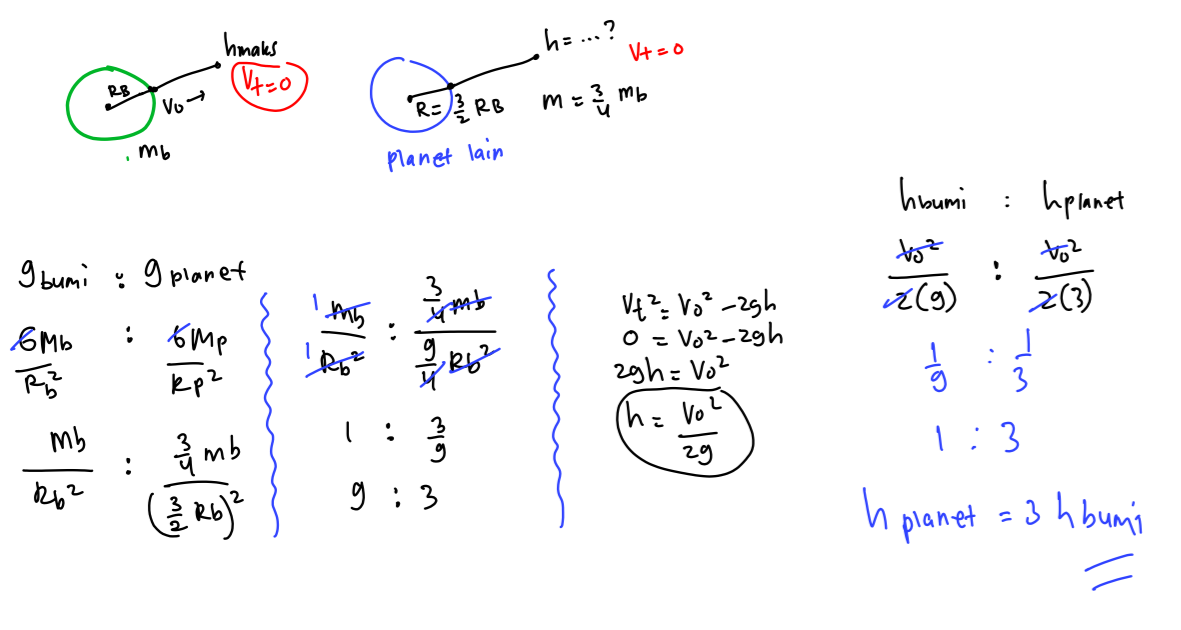 hmaks
RB
Vo →
Vt=0
mb
h= ...?
Vt=0
R= 3/2 RB
m = 3/4 mb
planet lain
gbumi : gplanet
GMb/Rb² : GMp/Rp²
mb/Rb² : 3/4 mb/(3/2 Rb)²
1 mb/1 Rb² : 3/4 mb/9/4 Rb²
1 : 3/9
9 : 3
Vt² = Vo² - 2gh
0 = Vo² - 2gh
2gh = Vo²
h = Vo²/2g
hbumi : hplanet
Vo²/2(9) : Vo²/2(3)
1/9 : 1/3
1 : 3
h planet = 3 h bumi